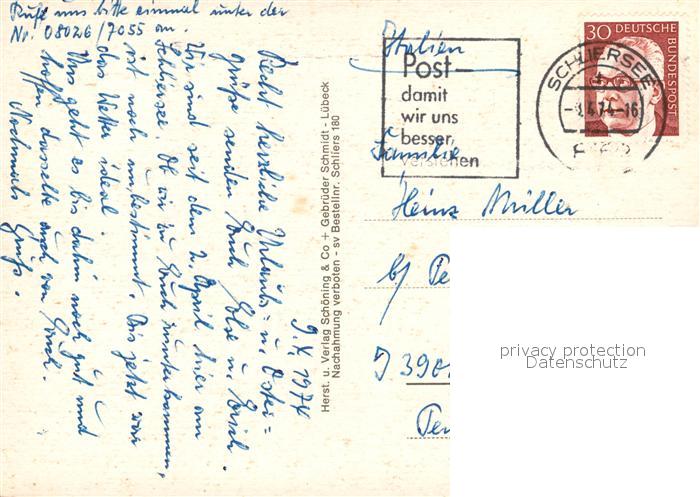 Ruft uns bitte einmal unter der
Nr. 08026/7055 an.
9. IV. 1974
Recht herzliche Urlaubs- u. Oster=
grüße senden Euch Else u. Erich.
Wir sind seit dem 2. April hier am
Schliersee. Ob wir zu Euch runterkommen,
ist noch unbestimmt. Bis jetzt war
das Wetter ideal.
Uns geht es bis dahin noch gut und
hoffen dasselbe auch von Euch.
Nochmals Gruß.
Herst. u. Verlag Schöning & Co + Gebrüder Schmidt - Lübeck
Nachahmung verboten - sv Bestellnr. Schliers 180
Italien
Post
damit
wir uns
besser
verstehen
SCHLIERSEE
4.74-16
30 DEUTSCHE
BUNDESPOST
Familie
Heinz Müller
b/ Pe
I 390
Pe
privacy protection
Datenschutz